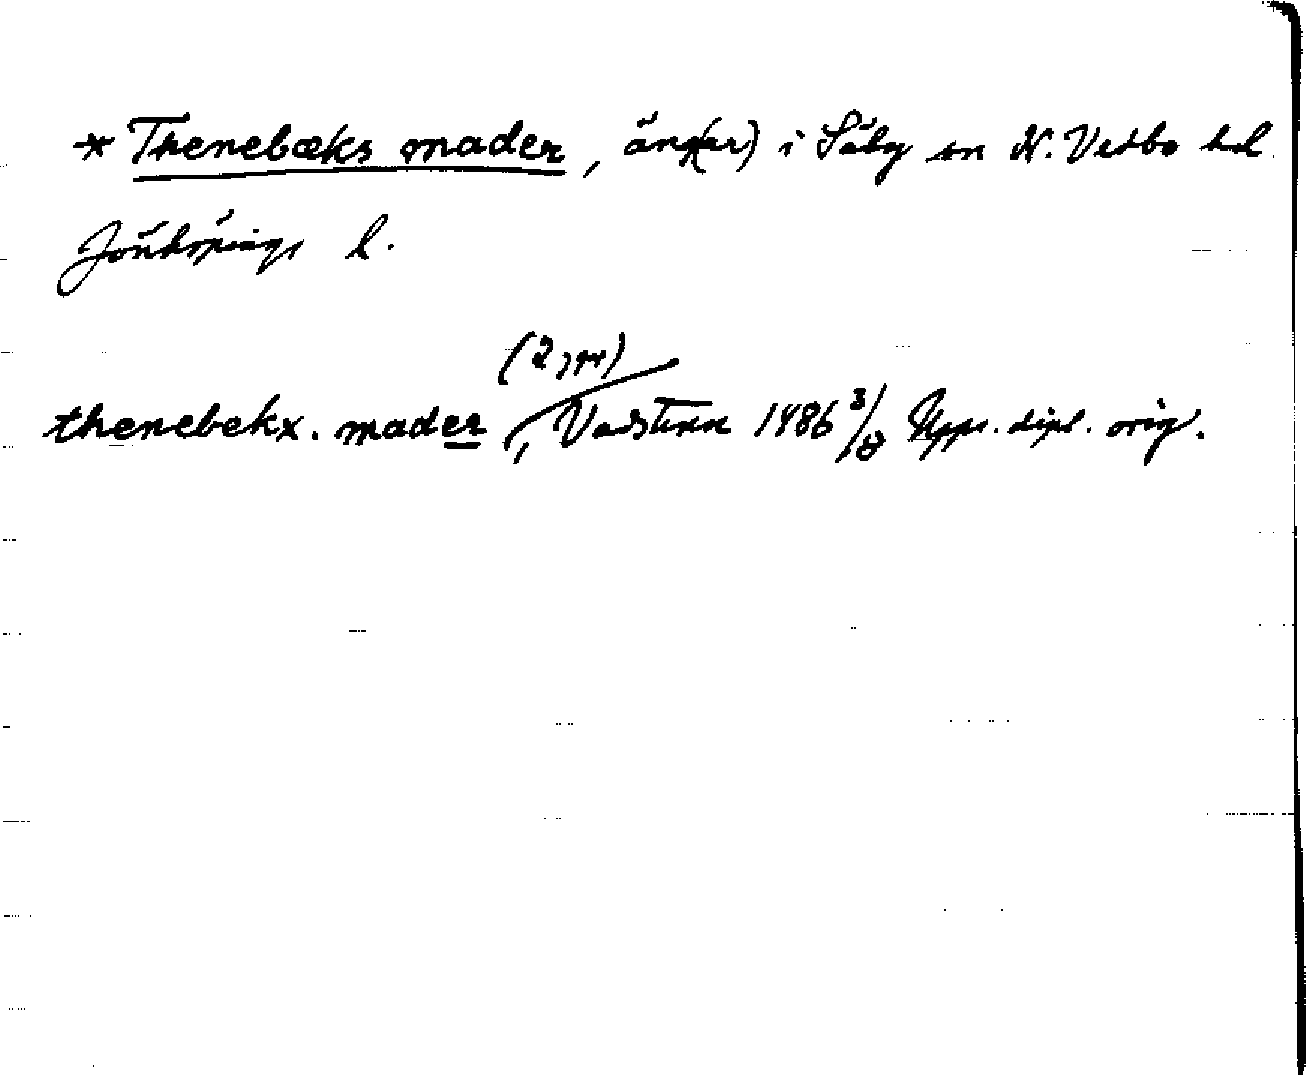 * Thenebæks mader, äng(ar) i Säby sn N. Vedbo hd
Jönköpings l.
(2 ggr)
thenebekx. mader, Vadstena 1486 3/8 Upps. dipl. orig.